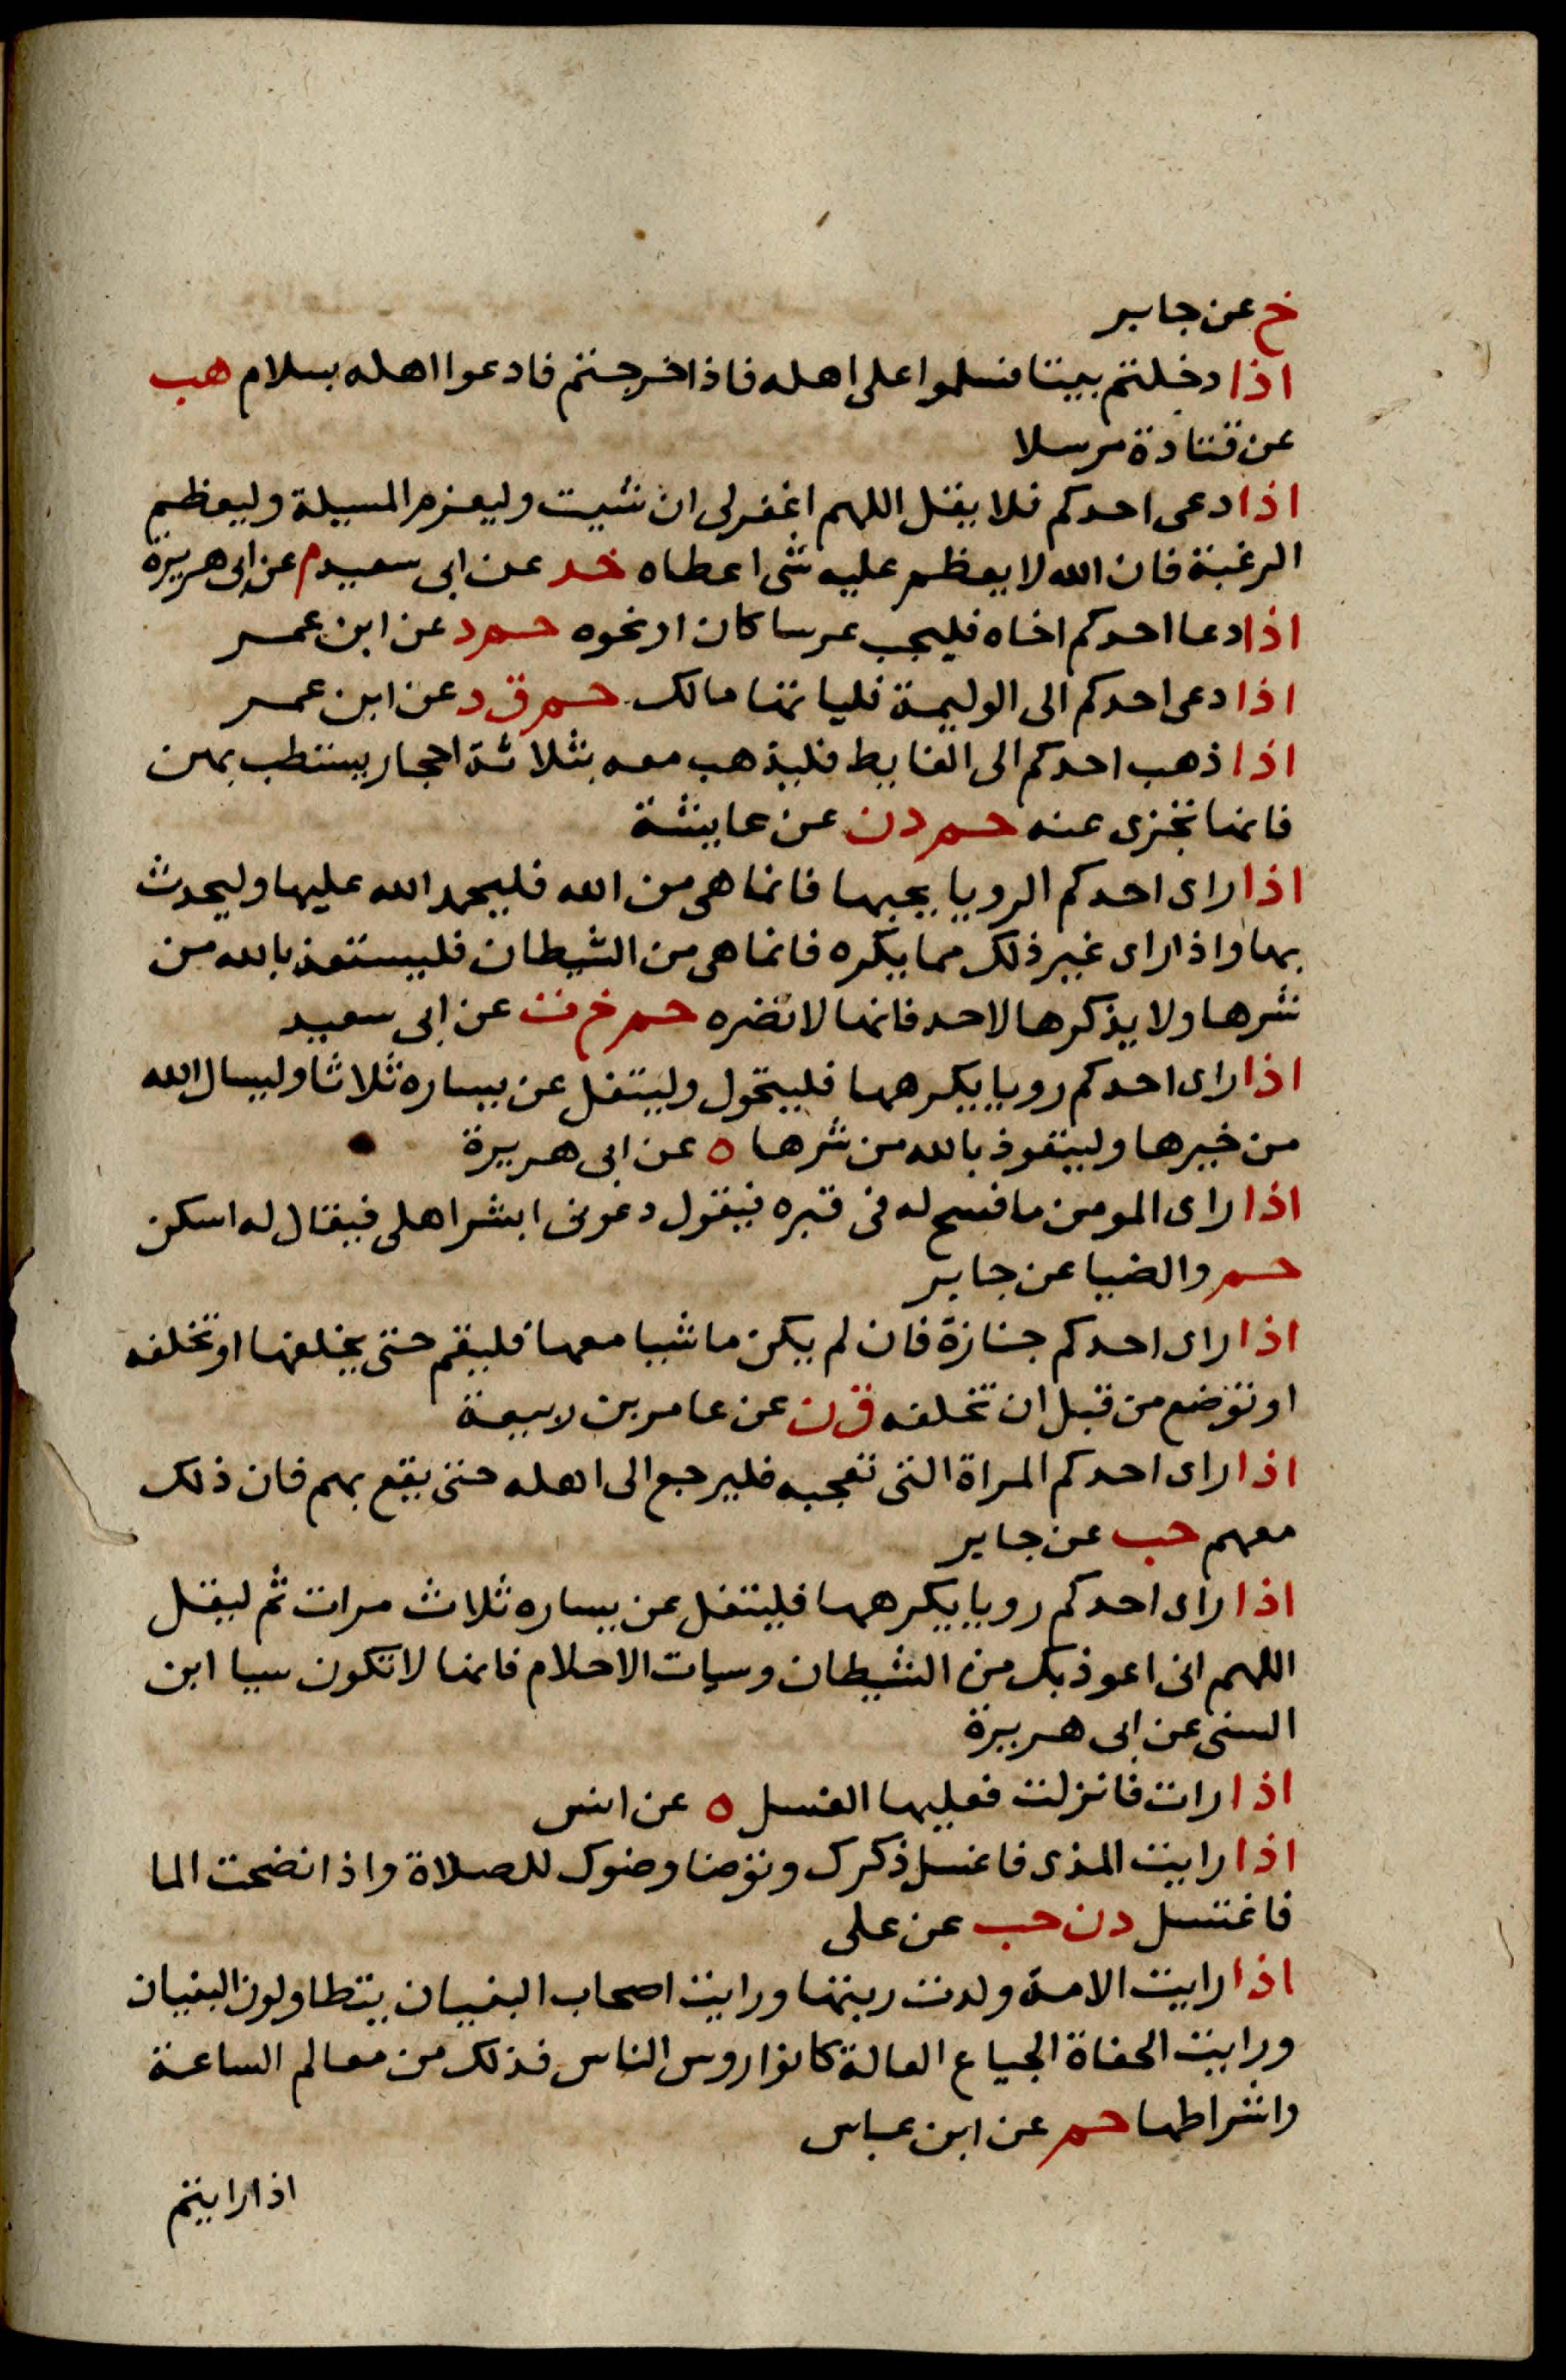 خ عن جابر
اذا دخلتم بيتا فسلموا على اهله فاذا خرجتم فادعوا اهله بسلام هب
عن قتادة مرسلا
اذا دعى احدكم فلا يقل اللهم اغفرلى ان شيت وليعزم المسيلة وليعظم
الرغبة فان الله لا يعظم عليه شى اعطاه خد عن ابى سعيد م عن ابى هريرة
اذا دعا احدكم اخاه فليجب عرسا كان او نحوه حم د عن ابن عمر
اذا دعى احدكم الى الوليمة فلياتها مالك حم ق د عن ابن عمر
اذا ذهب احدكم الى الغايط فليذهب معه بثلاثة احجار يستطب بهن
فانها تجزى عنه حم د ن عن عايشة
اذا راى احدكم الرويا يحبها فانما هى من الله فليحمد الله عليها وليحدث
بها واذا راى غير ذلك مما يكره فانما هى من الشيطان فليستعذ بالله من
شرها ولا يذكرها لاحد فانها لا تضره حم خ ت عن ابى سعيد
اذا راى احدكم رويا يكرهها فليتحول وليتفل عن يساره ثلاثا وليسال الله
من خيرها وليتعوذ بالله من شرها ه عن ابى هريرة
اذا راى المومن ما فسح له فى قبره فيقول دعونى ابشر اهلى فيقال له اسكن
حم والضيا عن جابر
اذا راى احدكم جنازة فان لم يكن ماشيا معها فليقم حتى يخلفها او تخلفه
او توضع من قبل ان تخلفه ق ن عن عامر بن ربيعة
اذا راى احدكم المراة التى تعجبه فليرجع الى اهله حتى يقع بهم فان ذلك
معهم حب عن جابر
اذا راى احدكم رويا يكرهها فليتفل عن يساره ثلاث مرات ثم ليقل
اللهم انى اعوذ بك من الشيطان وسيات الاحلام فانها لا تكون سيا ابن
السنى عن ابى هريرة
اذا رات فانزلت فعليها الغسل ه عن انس
اذا رايت المذى فاغسل ذكرك وتوضا وضوك للصلاة واذا نضحت الما
فاغتسل د ن حب عن على
اذا رايت الامة ولدت ربتها ورايت اصحاب البنيان يتطاولون البنيان
ورايت الحفاة الجياع العالة كانوا روس الناس فذلك من معالم الساعة
واشراطها حم عن ابن عباس
اذا رايتم